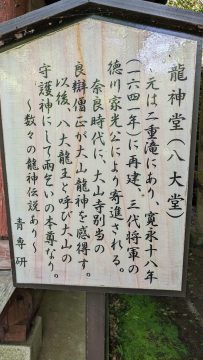 龍神堂(八大堂)
元は二重滝にあり、寛永十八年
(一六四一年)に再建、三代将軍の
徳川家光公により寄進される。
奈良時代に、大山寺別当の
良辯僧正が大山龍神を感得す。
以後、八大龍王と呼び大山の
守護神にして雨乞いの本尊なり。
~数々の龍神伝説あり~
青専研